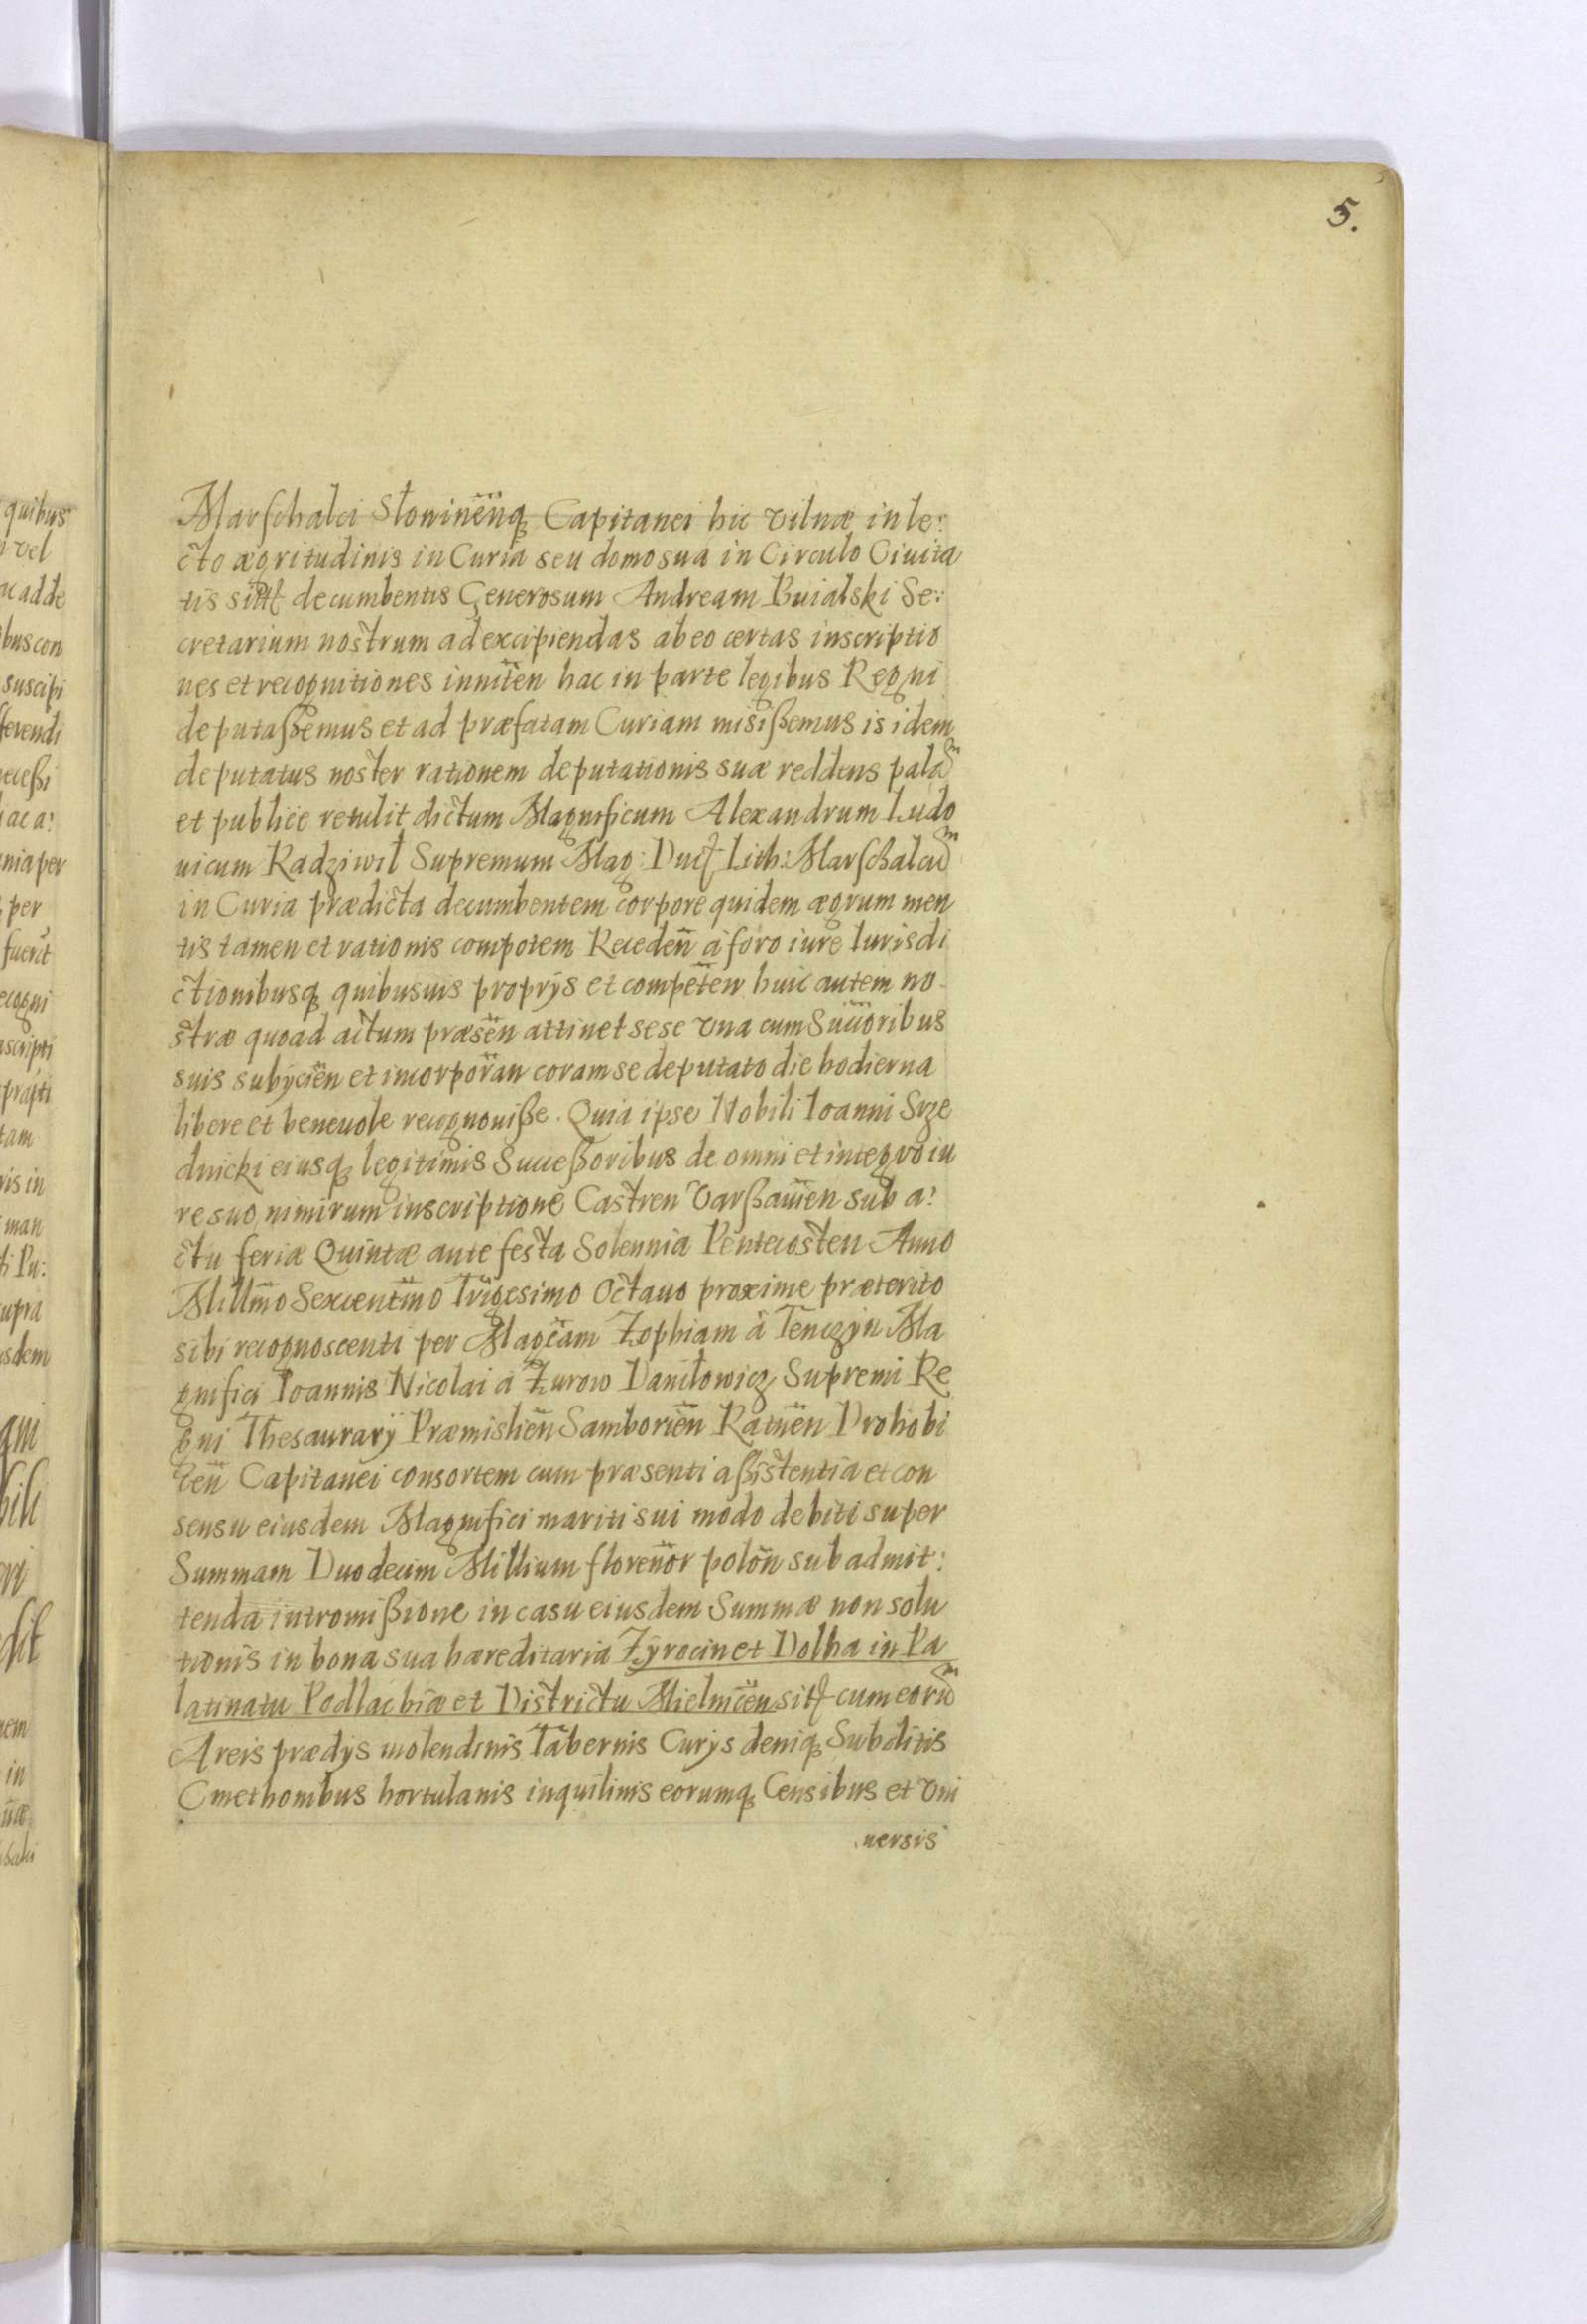 5.
Marſchalci Słoninēnq Capitanei hic Vilnæ in le:
cto ægritudinis in Curia seu domo sua in Circulo Ciuita
tis decumbentis Generosum Andream Buialski Se:
cretarium nostrum ad excipiendas ab eo certas inscriptio
nes et recognitiones inniten hac in parte legibus Regni
deputaßemus et ad præfatam Curiam misißemus is idem
deputatus noster rationem deputationis suæ reddens palā
et publice retulit dictum Magnificum Alexandrum Ludo
uicum Radziwił Supremum Mag: Duc Lith: Marſchalcū
in Curia prædicta decumbentem corpore quidem ægrum men
tis tamen et rationis compotem Recedeñ à foro iure Iurisdi
ctionibusq quibusuis proprÿs et competeñ huic autem no-
stræ quoad actum præseñ attinet sese Vna cum Succoribus
suis subÿcieñ et incorporañ coram se deputato die hodierna
libere et beneuole recognouiße. Quia ipse Nobili Ioanni Srze
dnicki eiusq legitimis Succeßoribus de omni et integro iu
re suo nimirum inscriptione Castreñ Varßauien sub a:
ctu feriæ Quintæ ante festa Solennia Pentecosten Anno
Millm̃o Sexcentm̃o Trigesimo Octauo proxime præterito
sibi recognoscenti per Magcam Zophiam à Tenczyn Ma
gnifici Ioannis Nicolai à Zurow Daniłowicz Supremi Re
gni Thesaurarÿ Præmislieñ Samborieñ Ratneñ Drohobi
ceñ Capitanei consortem cum præsenti aßistentia et con
sensu eiusdem Magnifici mariti sui modo debiti super
Summam Duodecim Millium florenor poloñ sub admit:
tenda intromißione in casu eiusdem Summæ non solu
tionis in bona sua hæreditaria Zÿrocin et Dolha in Pa
latinatu Podlachiæ et Districtu Mielniceñ sit cum eorū
Areis prædÿs molendinis Tabernis Curÿs deniq Subditis
Cmethonibus hortulanis inquilinis eorumq Censibus et Vni
uersis